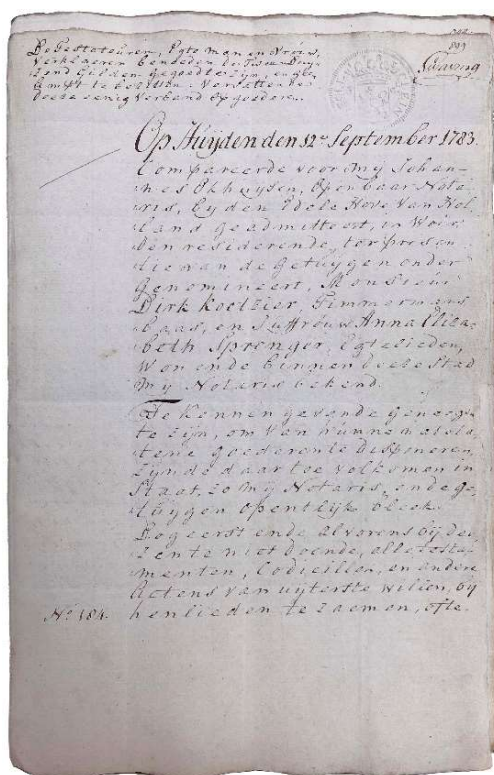 De Testateuren, Egte man en Vrouw,
Verklaeren beneeden de Twee Duy-
zend Gulden gegoed te zijn, en geen
Ampt te bekleeden
deese eenig Verband op goederen.
Op Huyden den 12e September 1783.
Compareerde voor mij Johan-
nes Okhuysen, Openbaar Nota-
ris, bij den Edele Hove van Hol-
land geadmitteert, in Woer-
den resideerende, ter presen-
tie van de Getuygen onder
Genomineert, Monsieur
Dirk Koetzier, Timmermans
baas, en Juffrouw Anna Eliza-
beth Sprenger, Egtelieden,
Wonende binnen deese Stad
mij Notaris bekend.
Te kennen gevende geneegen
te zijn, om van hunne
goederen te Disponeren,
zijnde daar toe Volkomen in
Staat, zo mij Notaris, ende ge-
tuygen openlijk bleek.
Dog eerst ende alvorens bij dee-
zen te niet doende, alle testa-
menten, Codicillen, en andere
Actens van uijterste willen, bij
No. 184. henlieden te zaemen, ofte